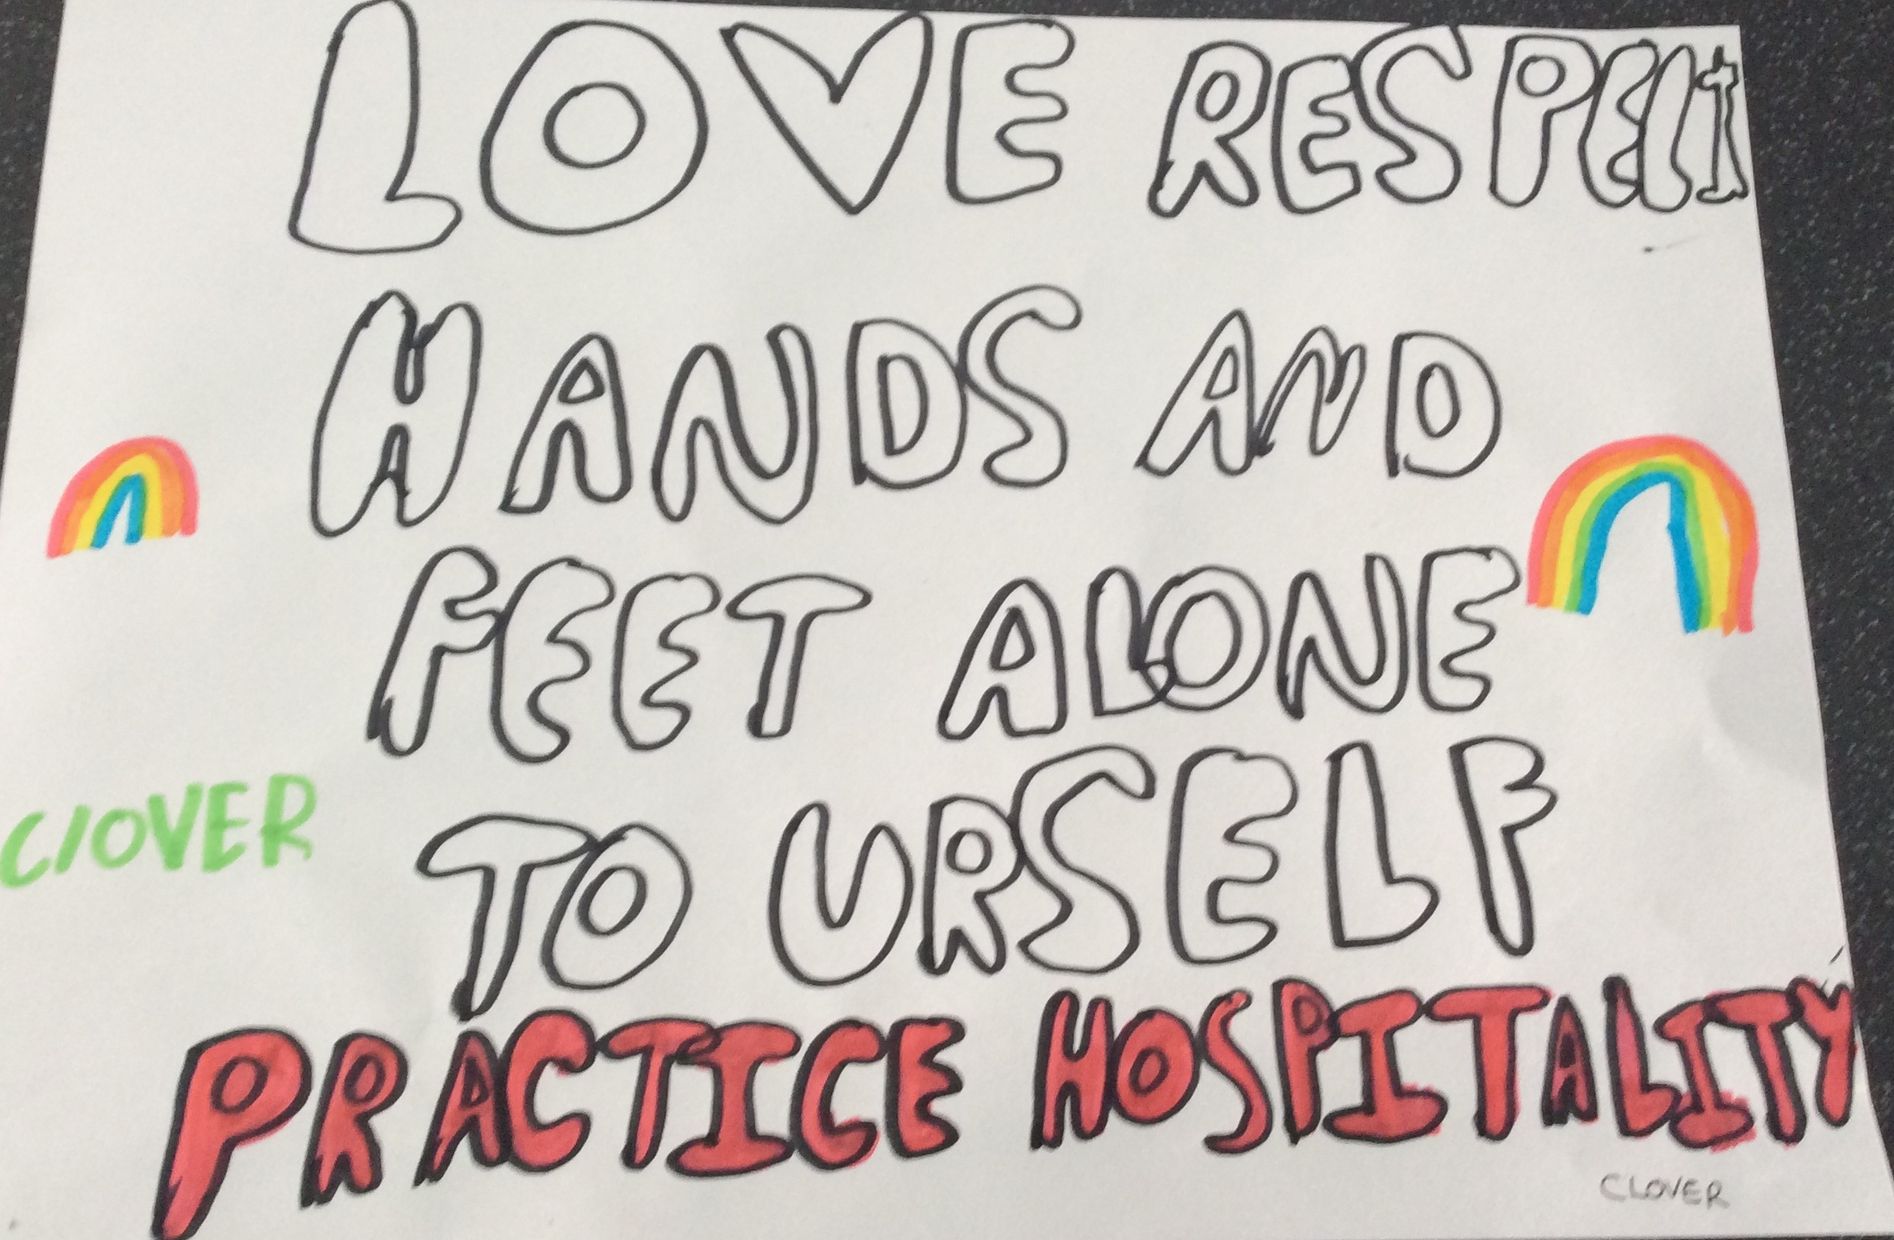 LOVE RESPECT
HANDS AND
FEET ALONE
ClOVER
TO URSELF
PRACTICE HOSPITALITY
CLOVER